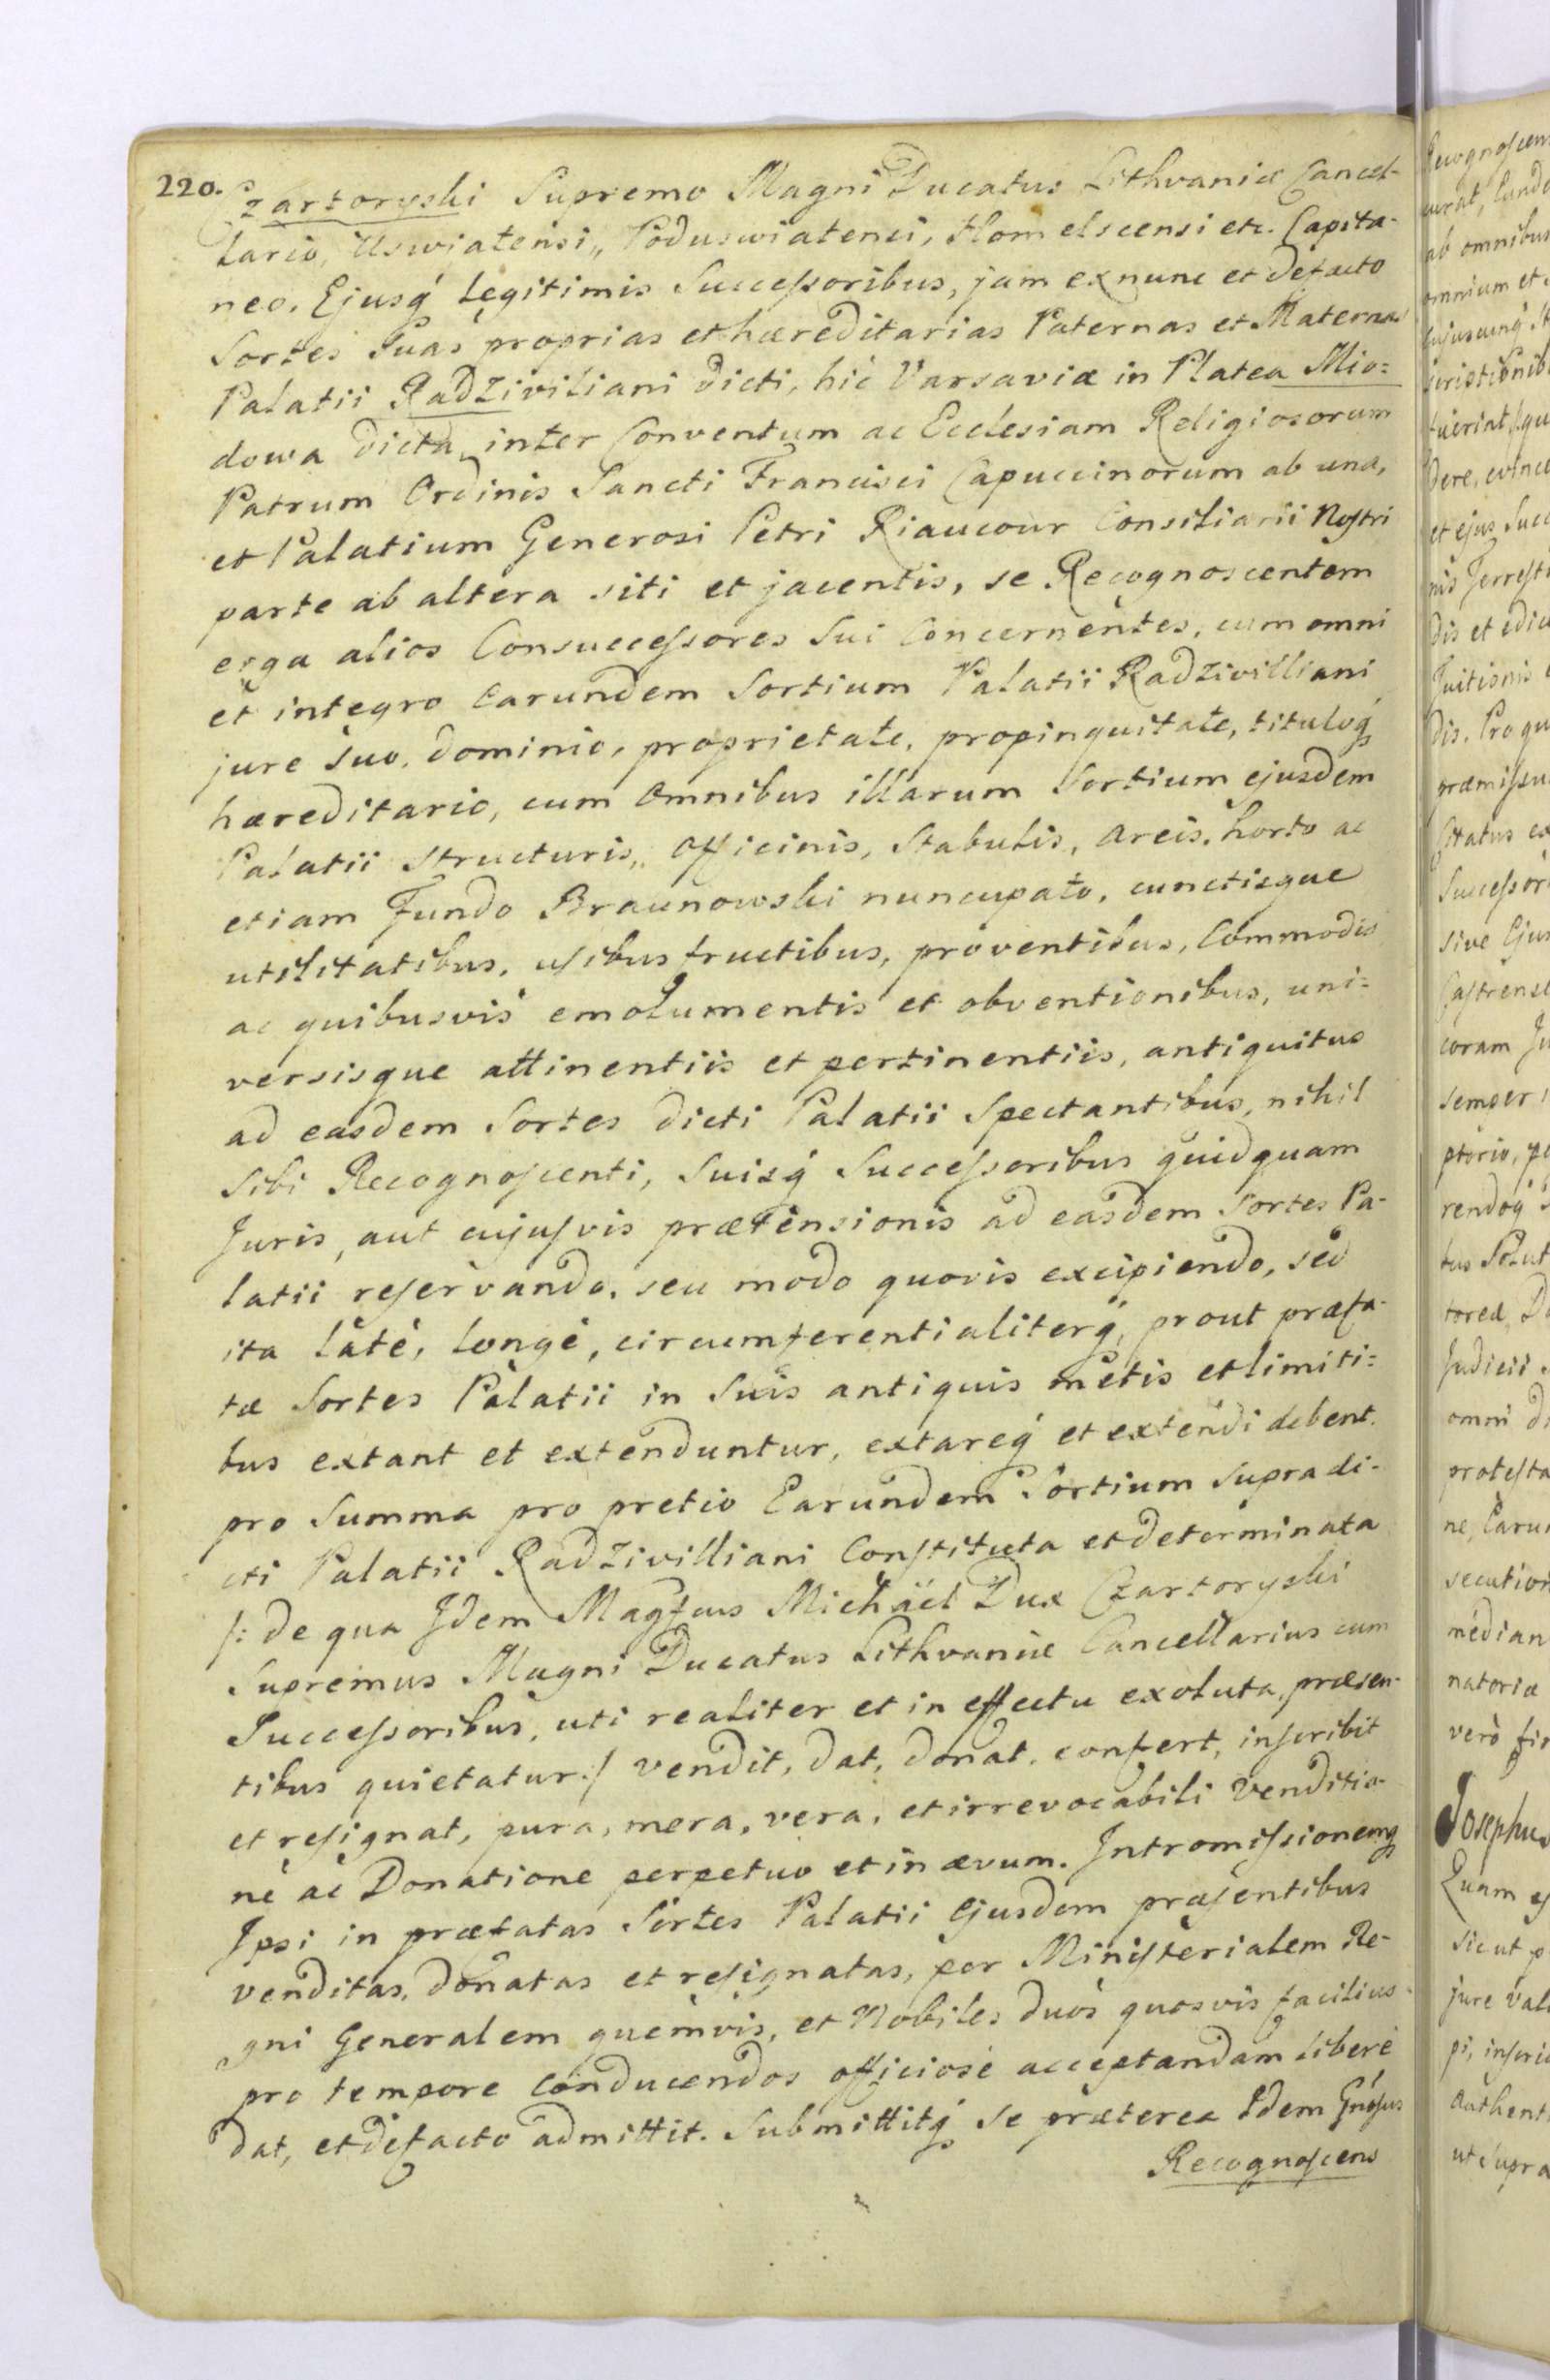 220.
Czartoryski Supremo Magni Ducatus Lithvaniæ Cancel-
lario, Uswiatensi, Poduswiatensi, Homelscensi etc. Capita-
neo. Ejusq́ Legitimis Succeſsoribus, jam exnunc et defacto
Sortes Suas proprias et hæreditarias Paternas et Maternas
Palatii Radziviliani dicti, hic Varsaviæ in Platea Mio=
dowa dicta, inter Conventum ac Ecclesiam Religiosorum
Patrum Ordinis Sancti Francisci Capuccinorum ab una,
et Palatium Generosi Petri Riaucour Consiliarii Noſtri
parte ab altera siti et jacentis, se Recognoscentem
erga alios Consucceſsores Sui Concernentes, cum omni
et integro earundem Sortium Palatii Radzivilliani
jure Suo, dominio, proprietate, propinquitate, tituloq́
hæreditario, cum Omnibus illarum Sortium ejusdem
Palatii Structuris, Officinis, Stabulis, Areis, horto ac
etiam Fundo Braunowski nuncupato, cunctisque
utilitatibus, uſibusfructibus, proventibus, Commodis
ac quibusvis emolumentis et obventionibus, uni=
versisque attinentiis et pertinentiis, antiquitus
ad easdem Sortes dicti Palatii Spectantibus, nihil
Sibi Recognoſcenti, Suisq́ Succeſsoribus quidquam
Juris, aut cujuſvis prætensionis ad easdem Sortes Pa-
latii reſervando, seu modo quovis excipiendo, sed
ita latè, longè, circumferentialiterq́, prout præfa-
tæ Sortes Palatii in Suis antiquis metis et limiti=
bus extant et extenduntur, extareq́ et extendi debent.
pro Summa pro pretio Earundem Sortium Supradi-
cti Palatii Radzivilliani Conſtituta et determinata
/: de qua Idem Magfcus Michäel Dux Czartoryski
Supremus Magni Ducatus Lithvaniæ Cancellarius cum
Succeſsoribus, uti realiter et in effectu exoluta, præsen-
tibus quietatur :/ vendit, dat, donat, confert, inſcribit
et reſignat, pura, mera, vera, et irrevocabili Venditio-
ne ac Donatione perpetuo et in ævum. Intromiſsionemq́
Ipsi in præfatas Sortes Palatii Ejusdem præſentibus
venditas, donatas et reſignatas, per Miniſterialem Re-
gni Generalem quemvis, et Nobiles duos quosvis facilius
pro tempore Conducendos officiosè acceptandam liberè
dat, et defacto admittit. Submittitq́ Se præterea Idem Gnoſus
Recognoſcens